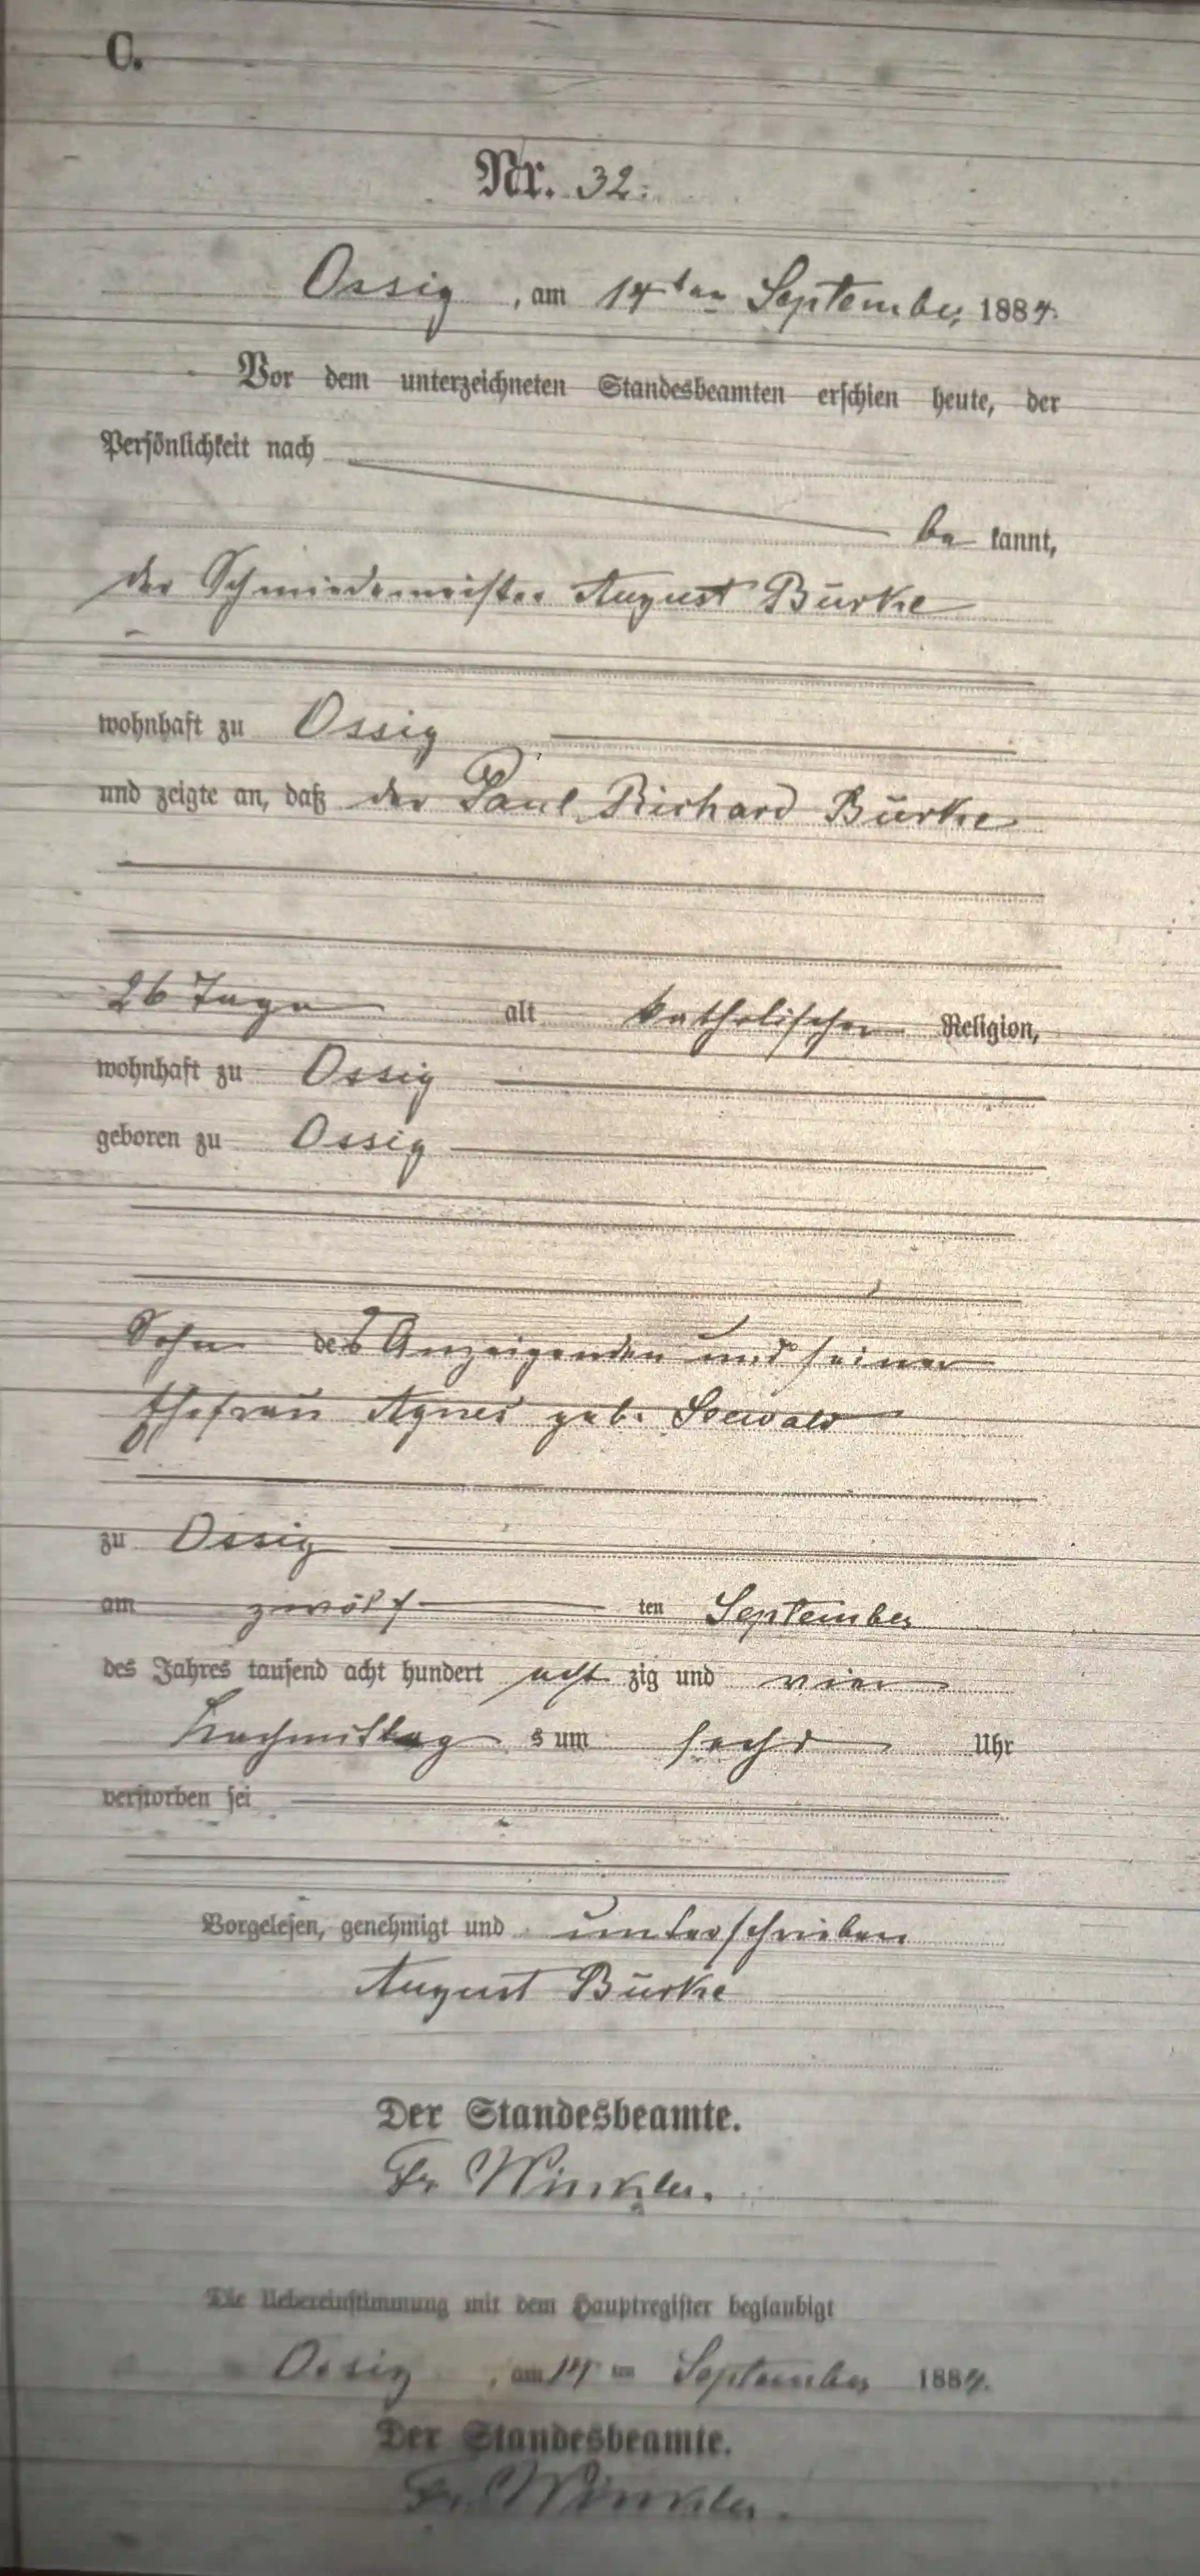 C.
Nr. 32.
Ossig, am 14ten September 1884.
Vor dem unterzeichneten Standesbeamten erschien heute, der
Persönlichkeit nach
be kannt,
der Schmiedemeister August Bürke
wohnhaft zu Ossig
und zeigte an, daß der Paul Richard Bürke
26 Tage alt katholischer Religion,
wohnhaft zu Ossig
geboren zu Ossig
Sohn des Anzeigenden und seiner
Ehefrau Agnes geb. Seewald
zu Ossig
am zwölf ten September
des Jahres tausend acht hundert acht zig und vier
Nachmittag s um sechs Uhr
verstorben sei
Vorgelesen, genehmigt und unterschrieben
August Bürke
Der Standesbeamte.
Fr. Winkler.
Die Uebereinstimmung mit dem Hauptregister beglaubigt
Ossig, am 14ten September 1884.
Der Standesbeamte.
Fr. Winkler.